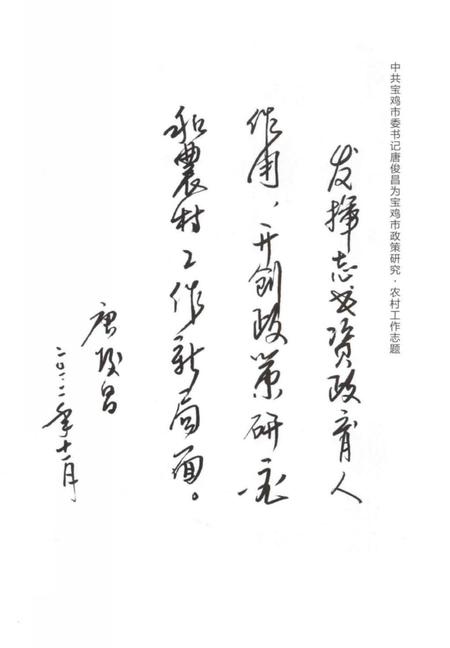 中共宝鸡市委书记唐俊昌为宝鸡市政策研究·农村工作志题
发挥志书资政育人
作用，开创政策研究
和農村工作新局面。
唐俊昌
二〇一二年十一月